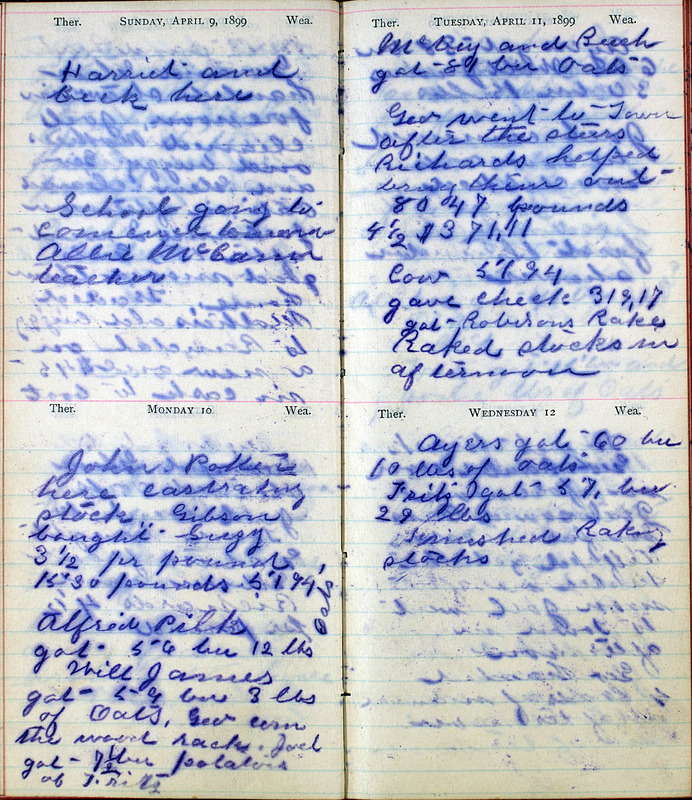 Ther. SUNDAY, APRIL 9, 1899 Wea.
Harriet and
Beck here
School going to
comence tomorrow
Allie McCann
teacher
Ther. MONDAY 10 Wea.
John
here castrating
stock Gibson
bought Suzy
3 1/2 pr pound
1530 pounds
Alfred Pilk
got 56 bu 12 lbs
Will James
got bu 8 lbs
of Oats, Geo
the wood rack. Joel
got 1 1/2 bu potatoes
of Frits
Ther. TUESDAY, APRIL 11, 1899 Wea.
and
got bu Oats
Geo went to Town
after the steers
Richards helped
bring them out
8047 pounds
4 1/2 $371,11
Cow 51 94
gave check 319,17
got Robisons Rake
Raked stocks in
afternoon
Ther. WEDNESDAY 12 Wea.
Ayers got 60 bu
10 lbs of oats
Frits got 57, bu
29 lbs
Finished Raking
stocks